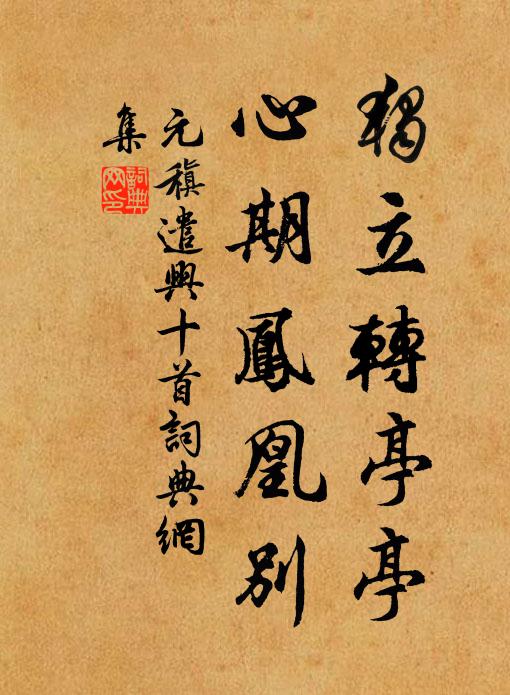 獨立轉亭亭
心期鳳凰別
元稹遣興十首詞典網
集
詞典
网印